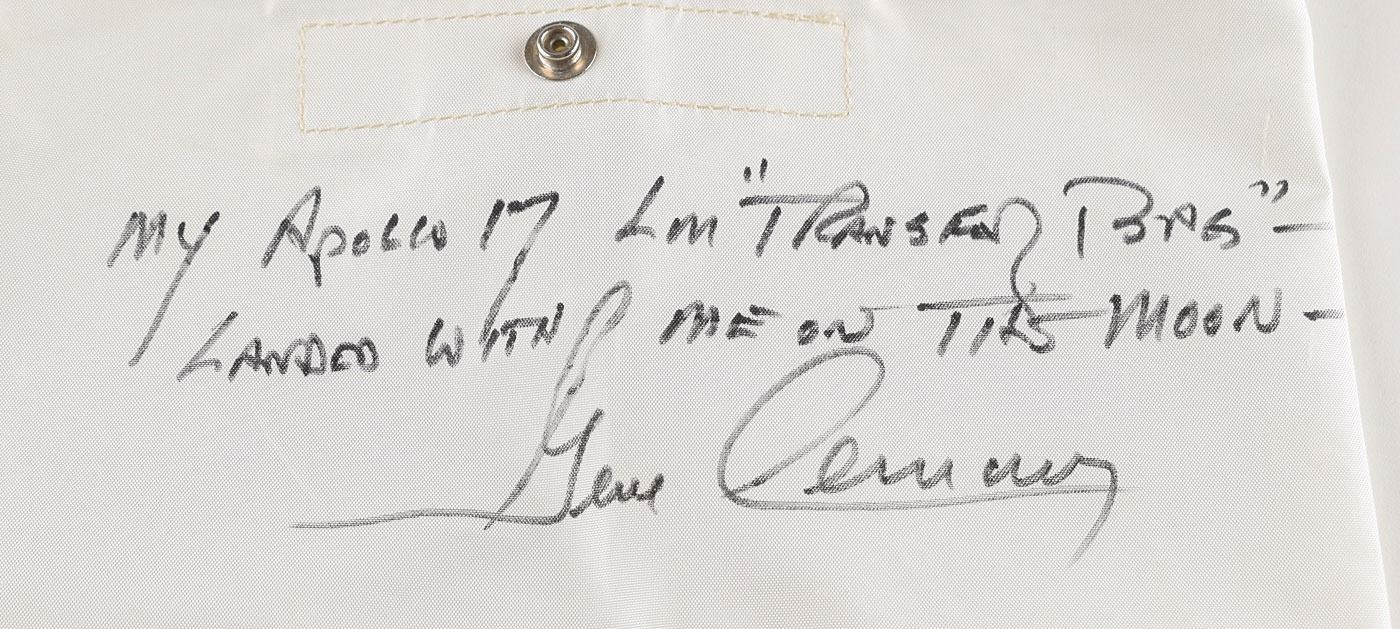 My Apollo 17 LM "Transfer Bag" -
Landed with me on the Moon -
Gene Cernan